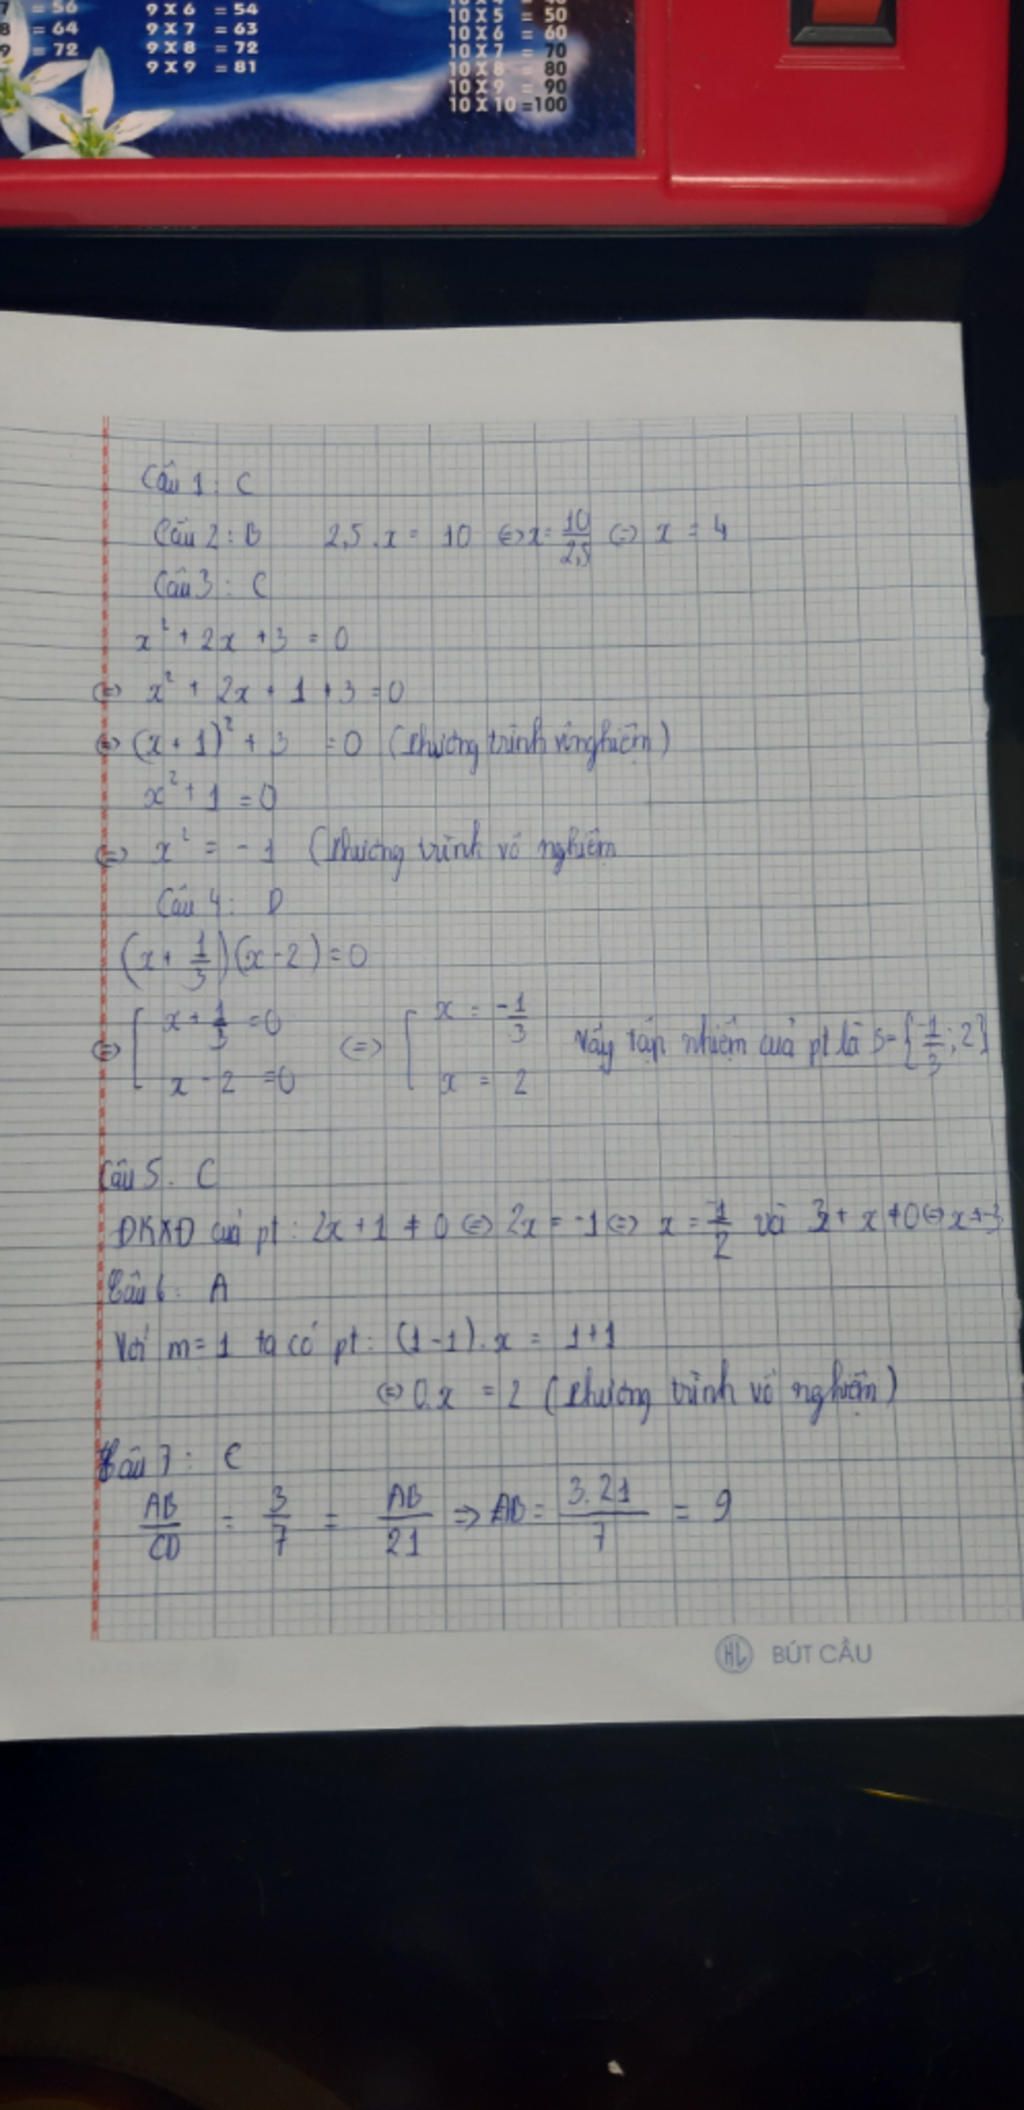 7 = 56
8 = 64
9 = 72
9 X 6 = 54
9 X 7 = 63
9 X 8 = 72
9 X 9 = 81
10 X 5 = 50
10 X 6 = 60
10 X 7 = 70
10 X 8 = 80
10 X 9 = 90
10 X 10 =100
Câu 1: C
Câu 2: B 2,5.x = 10 <=> x = 10/2,5 <=> x = 4
Câu 3: C
x² + 2x + 3 = 0
<=> x² + 2x + 1 + 3 = 0
<=> (x + 1)² + 3 = 0 (phương trình vô nghiệm)
x² + 1 = 0
<=> x² = -1 (phương trình vô nghiệm
Câu 4: D
(x + 1/3)(x - 2) = 0
<=> [ x + 1/3 = 0 <=> [ x = -1/3 Vậy tập nhiệm của pt là S = {-1/3; 2}
x - 2 = 0 x = 2
Câu 5. C
ĐKXĐ của pt: 2x + 1 ≠ 0 <=> 2x = -1 <=> x = -1/2 và 3 + x ≠ 0 <=> x ≠ -3
Câu 6: A
Với m = 1 ta có pt: (1-1).x = 1+1
<=> 0.x = 2 (phương trình vô nghiệm)
Câu 7: C
AB/CD = 3/7 = AB/21 => AB = 3.21/7 = 9
HL BÚT CẦU